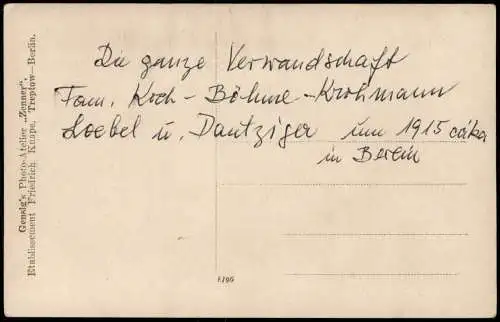 Die ganze Verwandschaft
Fam. Koch - Böhme - Krohmann
Loebel u. Dantziger um 1915
in Berlin
Gensig's Photo-Atelier „Zenner",
Etablissement Friedrich Knape, Treptow—Berlin.